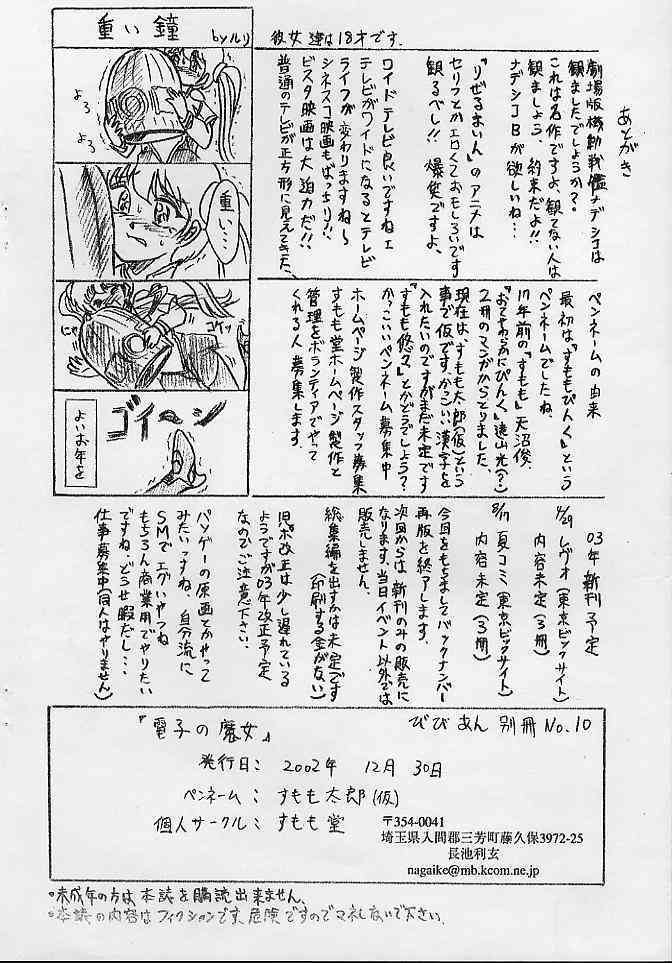 重い鐘
byルリ
よろ
よろ
重い…
にゃ
コケッ
ゴイ〜ン
よいお年を
彼女達は18才です。
あとがき
劇場版機動戦艦ナデシコは
観ましたでしょうか？
これは名作ですよ、観てない人は
観ましょう、約束だよ!!
ナデシコBが欲しいね…
『りぜるまいん』のアニメは
セリフとかエロくておもしろいです
観るべし!! 爆笑ですよ、
ワイドテレビ良いですねェ
テレビがワイドになるとテレビ
ライフが変わりますね〜
シネスコ映画もばっちり!!、
ビスタ映画は大迫力だ!!
普通のテレビが正方形に見えてきた、
ペンネームの由来
最初は『すももぴんく』という
ペンネームでしたね、
17年前の『すもも』天沼俊、
『おてやわらかにぴんく』遠山光(?)
2冊のマンガからとりました、
現在は、すもも太郎(仮)という
事で仮です、かっこいい漢字を
入れたいのですがまだ未定です
『すもも悠々』とかどうでしょう？
かっこいいペンネーム募集中
ホームページ製作スタッフ募集
すもも堂ホームページ製作と
管理をボランティアでやって
くれる人募集します。
03年 新刊予定
4/29 レヴォ(東京ビックサイト)
内容未定(3冊)
8/17 夏コミ(東京ビックサイト)
内容未定(3冊)
今回をもちましてバックナンバー
再版を終了します。
次回からは、新刊のみの販売に
なります。当日イベント以外では
販売しません。
総集編を出すかは未定です
(印刷する金がない)
児ポ改正は少し遅れている
ようですが03年改正予定
なのでご注意下さい。
パソゲーの原画とかやって
みたいっすね、自分流に
SMでエグいやつね
もちろん商業用でやりたい
ですね、どうせ暇だし…
仕事募集中(同人はやりません)
『電子の魔女』
びびあん 別冊 No.10
発行日： 2002年 12月 30日
ペンネーム： すもも太郎(仮)
個人サークル： すもも堂
〒354-0041
埼玉県入間郡三芳町藤久保3972-25
長池利玄
nagaike@mb.kcom.ne.jp
・未成年の方は、本誌を購読出来ません。
・本誌の内容はフィクションです、危険ですのでマネしないで下さい。